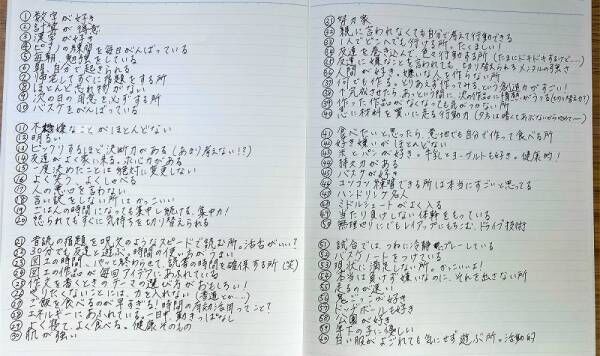 ① 数字が好き
② 計算が得意
③ 漢字が好き
④ ピアノの練習を毎日がんばっている
⑤ 毎朝、勉強をしている
⑥ 朝、自分で起きられる
⑦ 帰宅してすぐに宿題をする所
⑧ ほとんど忘れ物がない
⑨ 次の日の用意を必ずする所
⑩ バスケをがんばっている
⑪ 不機嫌なことがほとんどない
⑫ 明るい
⑬ ビックリするほど決断力がある(あまり考えない!?)
⑭ 友達がよく家に来る。ホーム力がある
⑮ 一度決めたことは絶対に変更しない
⑯ よく笑う。よくしゃべる
⑰ 人の悪口を言わない
⑱ 言い訳をしない所はかっこいい
⑲ ごはんの時間になっても集中し続ける、集中力!
⑳ 怒られてもすぐに気持ちを切り替えられる
㉑ 音読の宿題を呪文のようなスピードで読む所。活舌がいい?
㉒ 30分でも友達と遊ぶ。時間の使い方がうまい
㉓ 図工の時間、パパッと終わらせて、読書の時間を確保する所(笑)
㉔ 図工の作品が毎回アイデアにあふれている
㉕ 作文を書くときのテーマの選び方がおもしろい!
㉖ やりたくないことには、力を入れない(書道とか…)
㉗ ご飯を食べるのが早すぎる!時間の有効活用ってこと?
㉘ エネルギーにあふれている。一日中、動きっぱなし
㉙ よく寝て、よく食べる。健康そのもの
㉚ 肌が強い
㉛ 努力家
㉜ 親に言われなくても自分で考えて行動できる
㉝ 1人でどこへでも行ける所。たくましい!
㉞ 友達を巻き込んで、色々行動する所(たまにドキドキするけど…)
㉟ 友達に嫌なことを言われても、切り替えられるメンタルの強さ
㊱ 人間が好き。嫌いな人を作らない所
㊲ 何を作っても、とりあえず作ってみるという創造力がすごい!
㊳ 作った作品がなくなっても気がつかない所
㊵ 心は材料を買いに走る行動力
㊶ 食べたい!と思ったら、意地でも自分で作って食べる所
㊷ 好き嫌いがほとんどない
㊸ 米とパンが好き。牛乳とヨーグルトも好き。健康的!
㊹ 持久力がある
㊺ バスケが好き
㊻ コツコツ練習できる所は本当にすごいと思ってる
㊼ ハンドリング名人
㊽ ミドルシュートがよく入る
㊾ 当たり負けしない体幹をもっている
㊿ 無理やりにでもレイアップにもちこむ、ドライブ技術
51 試合では、つねに冷静にプレーしている
52 バスケノートをつけている
53 現状に満足しない所。かっこいいよ!
54 本当は負けず嫌いなのに、それを出さない所
55 走るのが速い
56 鬼ごっこが好き
57 ドッヂボールも好き
58 公園が好き
59 年下の子に優しい
60 白い服がよごれても気にせず遊ぶ所。活動的